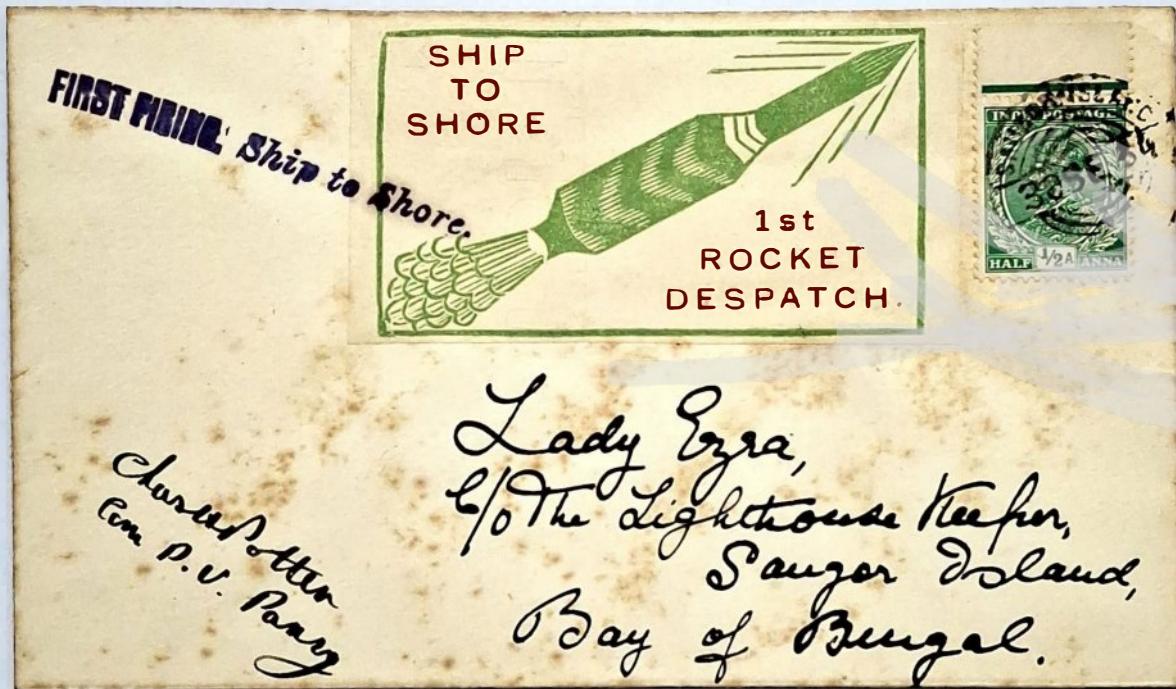 FIRST FIRING. Ship to Shore.
SHIP
TO
SHORE
1st
ROCKET
DESPATCH.
INDIA POSTAGE
HALF 1/2A ANNA
Lady Ezra,
C/o The Lighthouse Keeper,
Saugor Island,
Bay of Bengal.
Charles Potter
P. V.